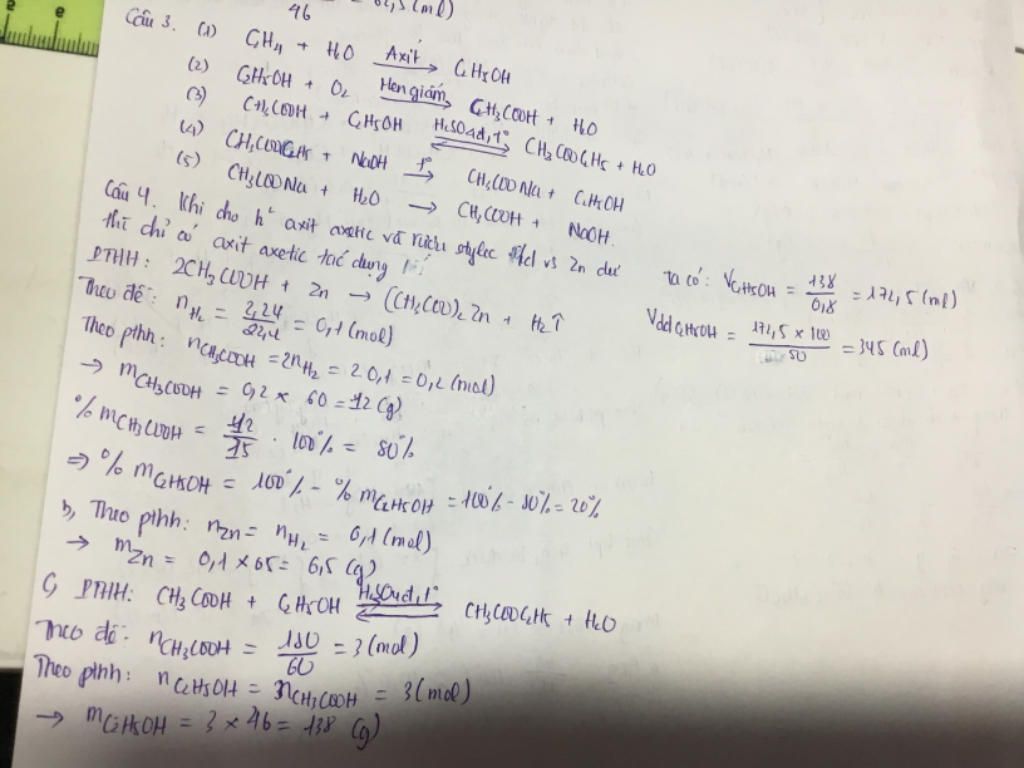 46
Câu 3. (1) C2H4 + H2O Axit → C2H5OH
(2) C2H5OH + O2 Men giấm → CH3COOH + H2O
(3) CH3COOH + C2H5OH H2SO4đ,t° ⇌ CH3COOC2H5 + H2O
(4) CH3COOC2H5 + NaOH t° → CH3COONa + C2H5OH
(5) CH3COONa + H2O → CH3COOH + NaOH.
Câu 4. Khi cho h² axit axetic và rượu etylic vs Zn dư
thì chỉ có axit axetic tác dụng
PTHH: 2CH3COOH + Zn → (CH3COO)2Zn + H2↑
Theo đề: nH2 = 2,24/22,4 = 0,1 (mol)
Theo pthh: nCH3COOH = 2nH2 = 2.0,1 = 0,2 (mol)
→ mCH3COOH = 0,2 × 60 = 12 (g)
% mCH3COOH = 12/15 . 100% = 80%
⇒ % mC2H5OH = 100% - % mC2H5OH = 100% - 80% = 20%
b, Theo pthh: nZn = nH2 = 0,1 (mol)
→ mZn = 0,1 × 65 = 6,5 (g)
C, PTHH: CH3COOH + C2H5OH H2SO4đ,t° ⇌ CH3COOC2H5 + H2O
Theo đề: nCH3COOH = 180/60 = 3 (mol)
Theo pthh: nC2H5OH = nCH3COOH = 3 (mol)
→ mC2H5OH = 3 × 46 = 138 (g)
Ta có: VC2H5OH = 138/0,8 = 172,5 (ml)
VddC2H5OH = 172,5 × 100/50 = 345 (ml)